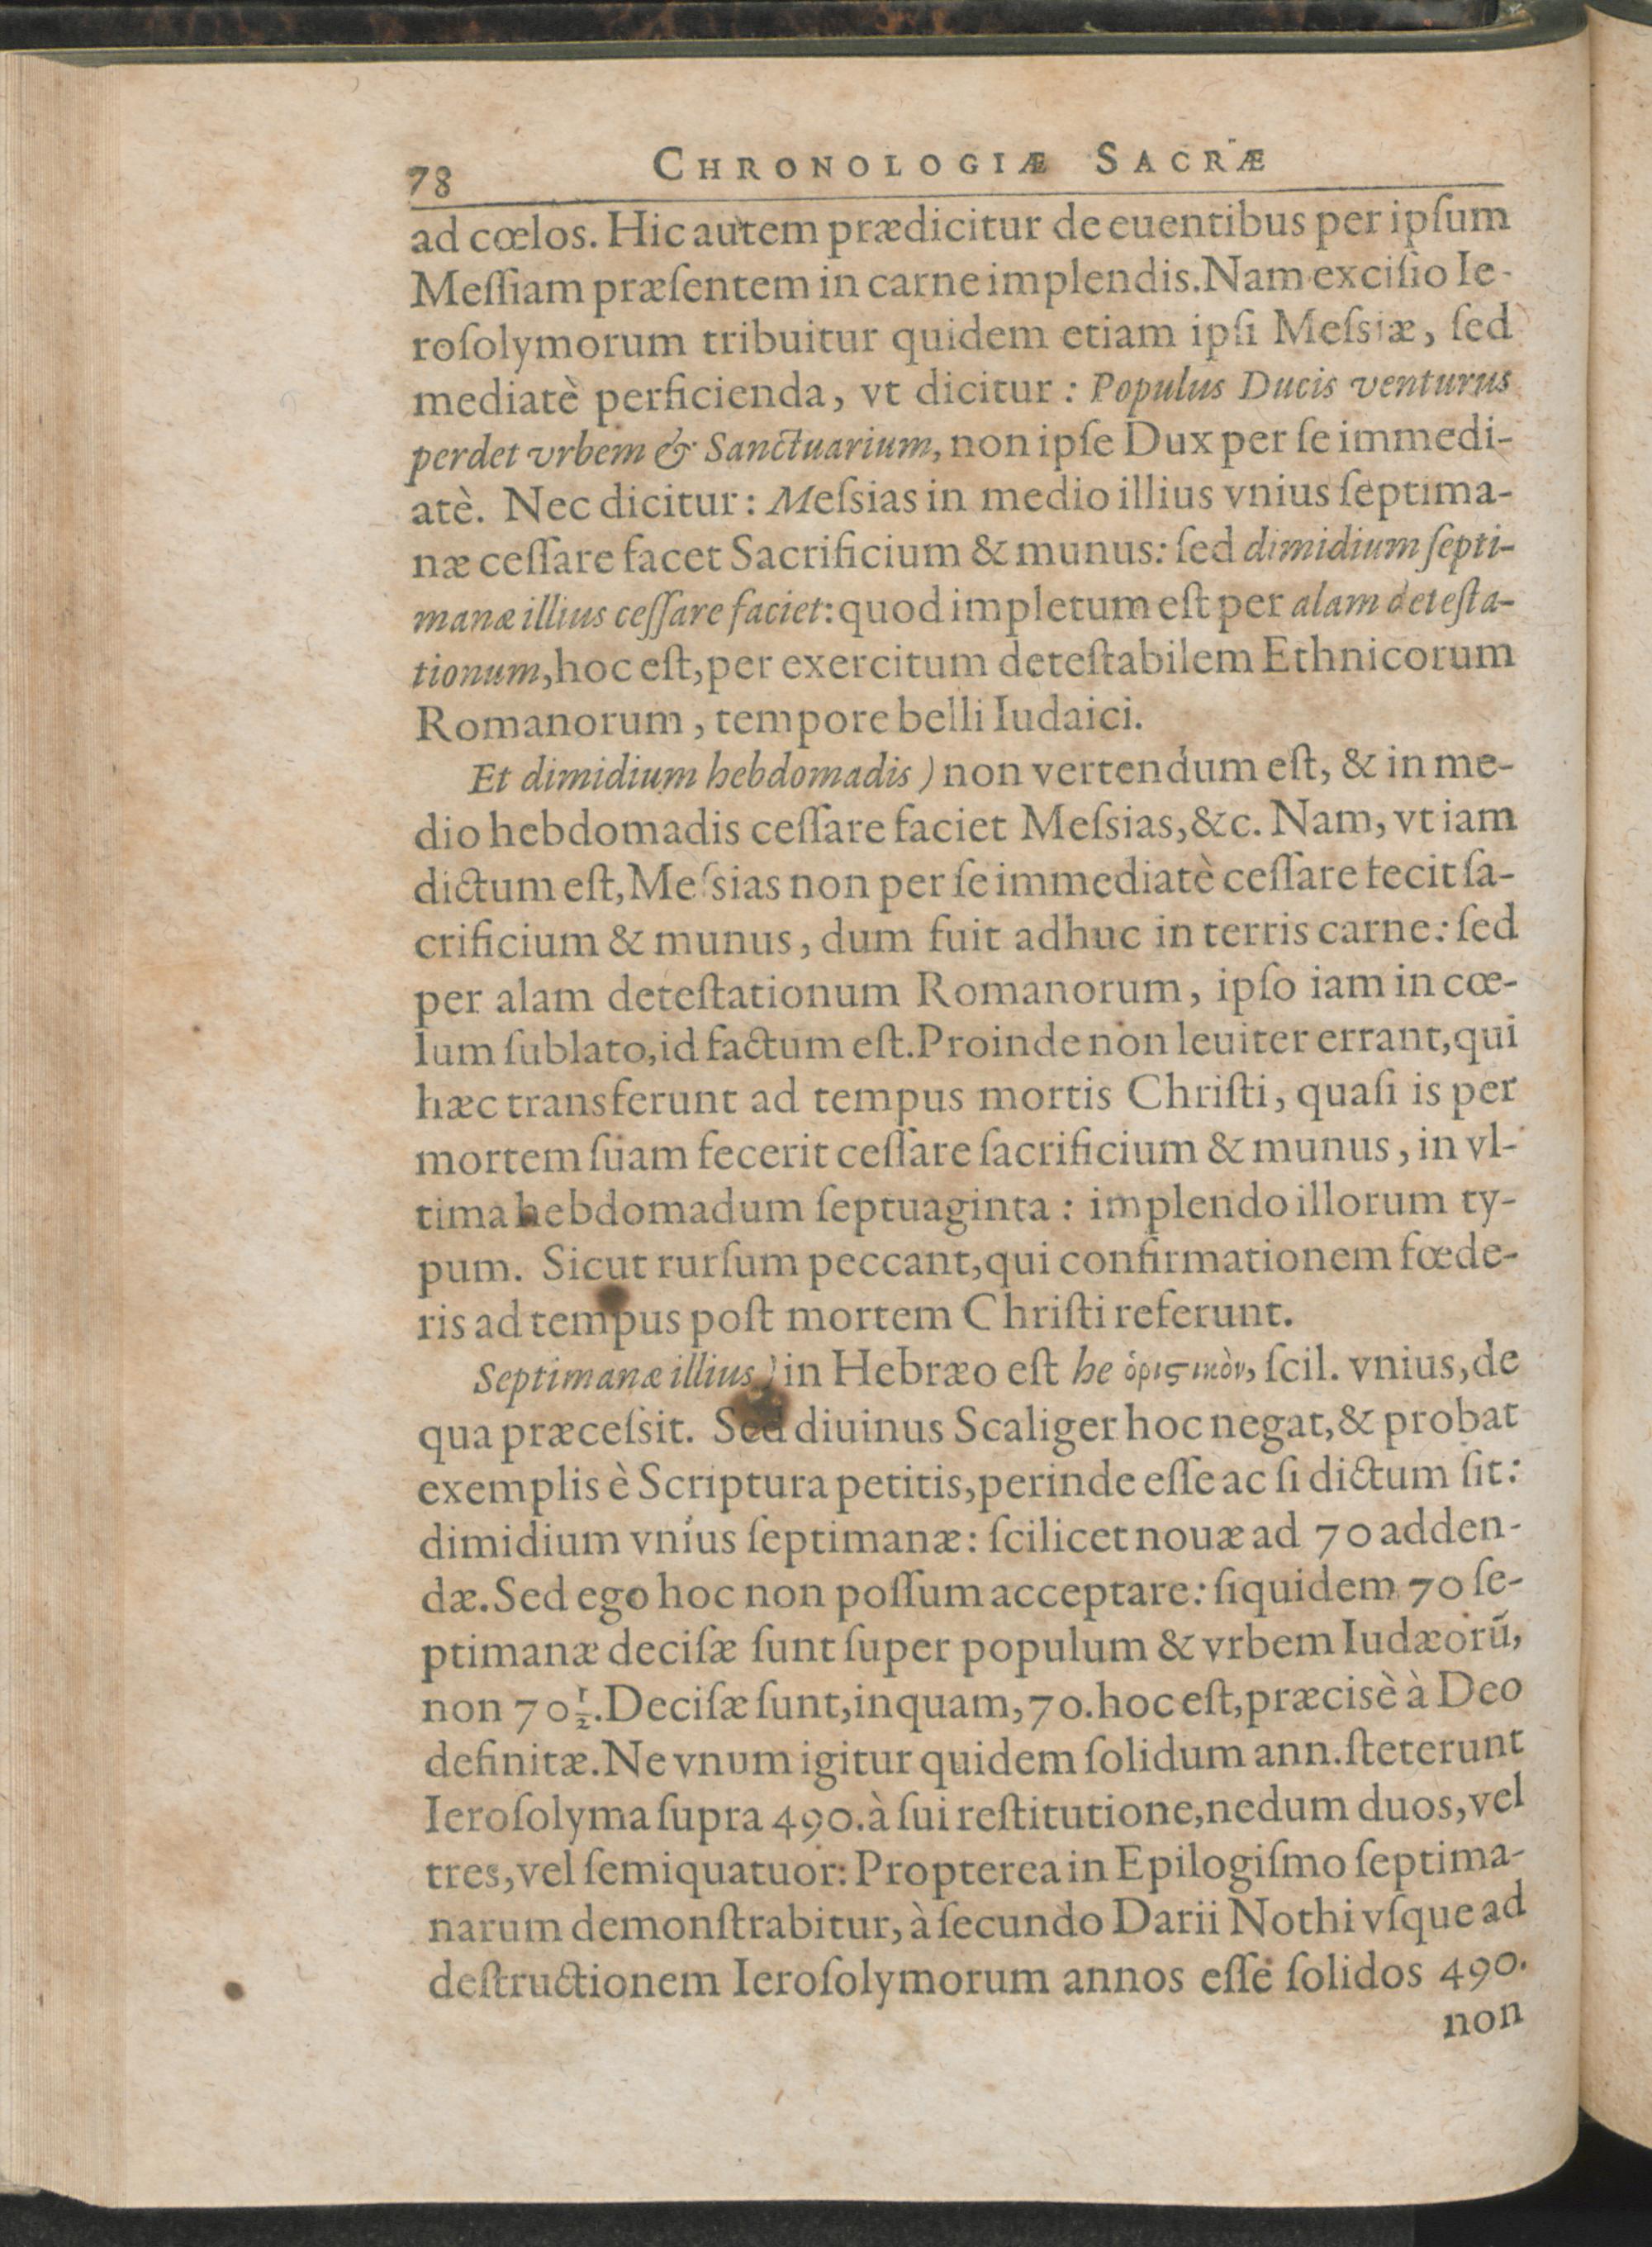 78 CHRONOLOGIÆ SACRÆ
ad cœlos. Hic autem prædicitur de euentibus per ipſum
Meſſiam præſentem in carne implendis. Nam exciſio Ie-
roſolymorum tribuitur quidem etiam ipſi Meſsiæ, ſed
mediatè perficienda, vt dicitur: Populus Ducis venturus
perdet vrbem & Sanctuarium, non ipſe Dux per ſe immedi-
atè. Nec dicitur: Meſsias in medio illius vnius ſeptima-
næ ceſſare facet Sacrificium & munus: ſed dimidium ſepti-
manæ illius ceſſare faciet: quod impletum eſt per alam deteſta-
tionum, hoc eſt, per exercitum deteſtabilem Ethnicorum
Romanorum, tempore belli Iudaici.
Et dimidium hebdomadis) non vertendum eſt, & in me-
dio hebdomadis ceſſare faciet Meſsias, &c. Nam, vt iam
dictum eſt, Meſsias non per ſe immediatè ceſſare fecit ſa-
crificium & munus, dum fuit adhuc in terris carne: ſed
per alam deteſtationum Romanorum, ipſo iam in cœ-
lum ſublato, id factum eſt. Proinde non leuiter errant, qui
hæc transferunt ad tempus mortis Chriſti, quaſi is per
mortem ſuam fecerit ceſſare ſacrificium & munus, in vl-
tima hebdomadum ſeptuaginta: implendo illorum ty-
pum. Sicut rurſum peccant, qui confirmationem fœde-
ris ad tempus poſt mortem Chriſti referunt.
Septimanæ illius) in Hebræo eſt he ὁριϛικὸν, ſcil. vnius, de
qua præceſsit. Sed diuinus Scaliger hoc negat, & probat
exemplis è Scriptura petitis, perinde eſſe ac ſi dictum ſit:
dimidium vnius ſeptimanæ: ſcilicet nouæ ad 70 adden-
dæ. Sed ego hoc non poſſum acceptare: ſiquidem 70 ſe-
ptimanæ deciſæ ſunt ſuper populum & vrbem Iudæorū,
non 70½. Deciſæ ſunt, inquam, 70. hoc eſt, præcisè à Deo
definitæ. Ne vnum igitur quidem ſolidum ann. ſteterunt
Ieroſolyma ſupra 490. à ſui reſtitutione, nedum duos, vel
tres, vel ſemiquatuor: Propterea in Epilogiſmo ſeptima-
narum demonſtrabitur, à ſecundo Darii Nothi vſque ad
deſtructionem Ieroſolymorum annos eſſe ſolidos 490.
non